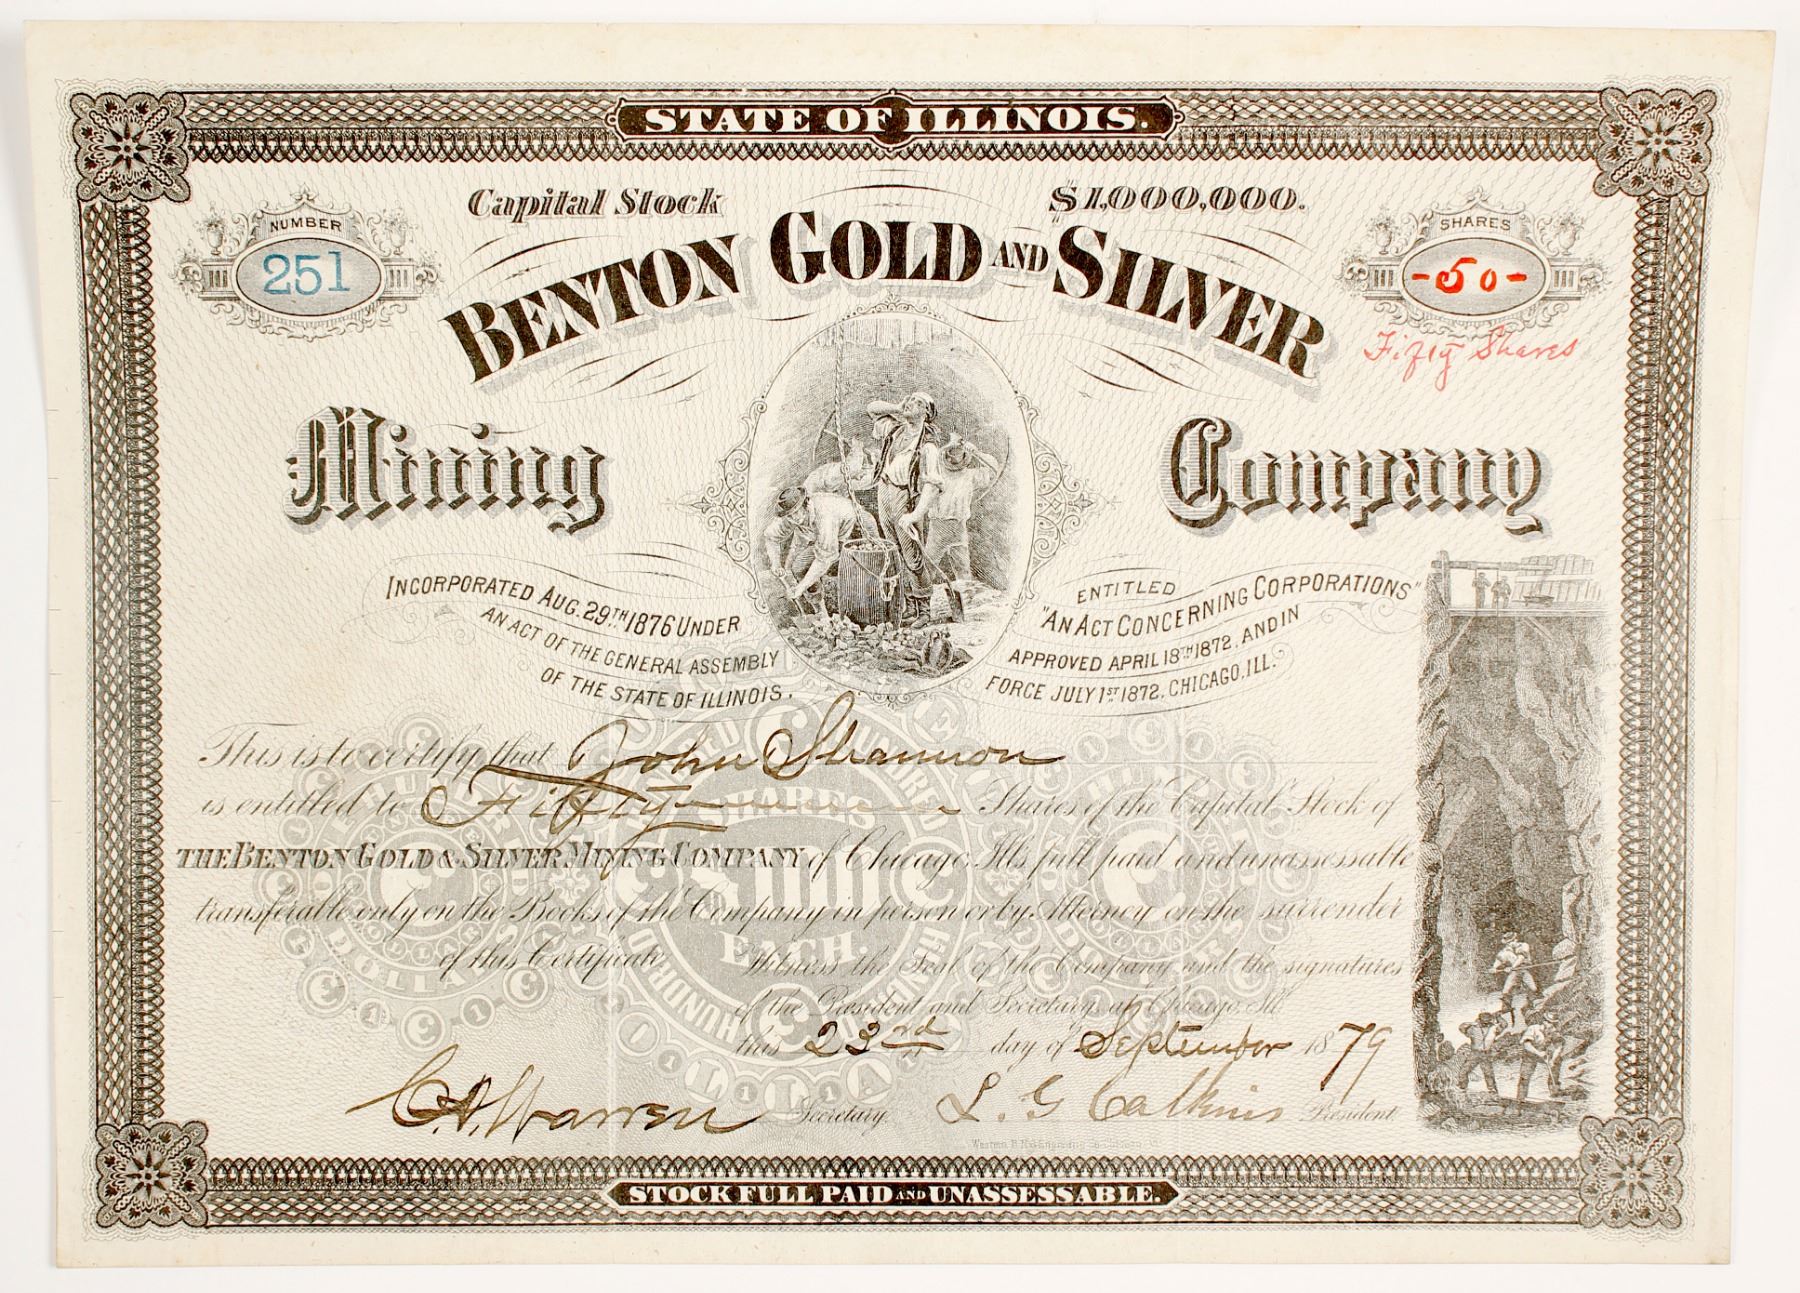 STATE OF ILLINOIS.
Capital Stock $1,000,000.
NUMBER
251
SHARES
-50-
Fifty Shares
BENTON GOLD AND SILVER
Mining Company
INCORPORATED AUG. 29TH 1876 UNDER
AN ACT OF THE GENERAL ASSEMBLY
OF THE STATE OF ILLINOIS.
ENTITLED
"AN ACT CONCERNING CORPORATIONS"
APPROVED APRIL 18TH 1872, AND IN
FORCE JULY 1ST 1872. CHICAGO, ILL.
This is to certify that John Shannon
is entitled to Fifty Shares of the Capital Stock of
THE BENTON GOLD & SILVER MINING COMPANY of Chicago, Ills full paid and unassessable
transferable only on the Books of the Company in person or by Attorney on the surrender
of this Certificate.
Witness the Seal of the Company and the signatures
of the President and Secretary at Chicago, Ill.
this 23rd day of September 1879
C. A. Warren Secretary. L. G. Calkins President.
SHARES
$100
EACH.
STOCK FULL PAID AND UNASSESSABLE.